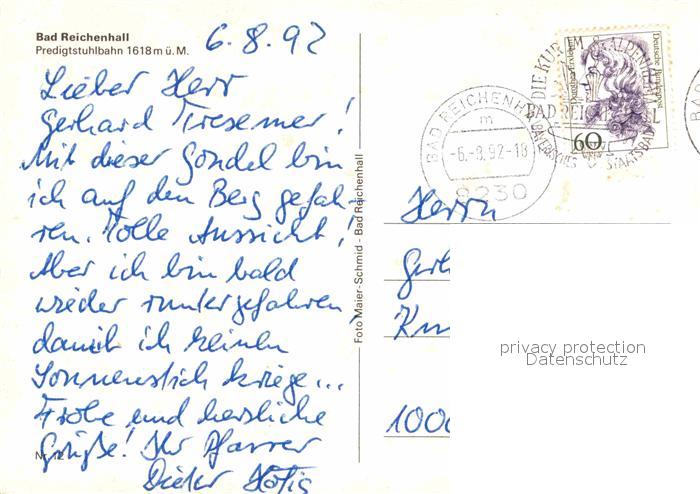 Bad Reichenhall
Predigtstuhlbahn 1618 m ü. M.
6.8.92
Lieber Herr
Gerhard Tresemer!
Mit dieser Gondel bin
ich auf den Berg gefah-
ren. Tolle Aussicht!
Aber ich bin bald
wieder runtergefahren,
damit ich keinen
Sonnenstich kriege...
Frohe und herzliche
Grüße! Ihr Pfarrer
Dieter
Nr. 12
Foto Maier-Schmid - Bad Reichenhall
BAD REICHENHALL
m
-6.-8.92-18
8230
DIE KUR IM
BAD REICHENHALL
BAYERISCHES STAATSBAD
Deutsche Bundespost
60
Herrn
Gerh
Kn
1000
privacy protection
Datenschutz